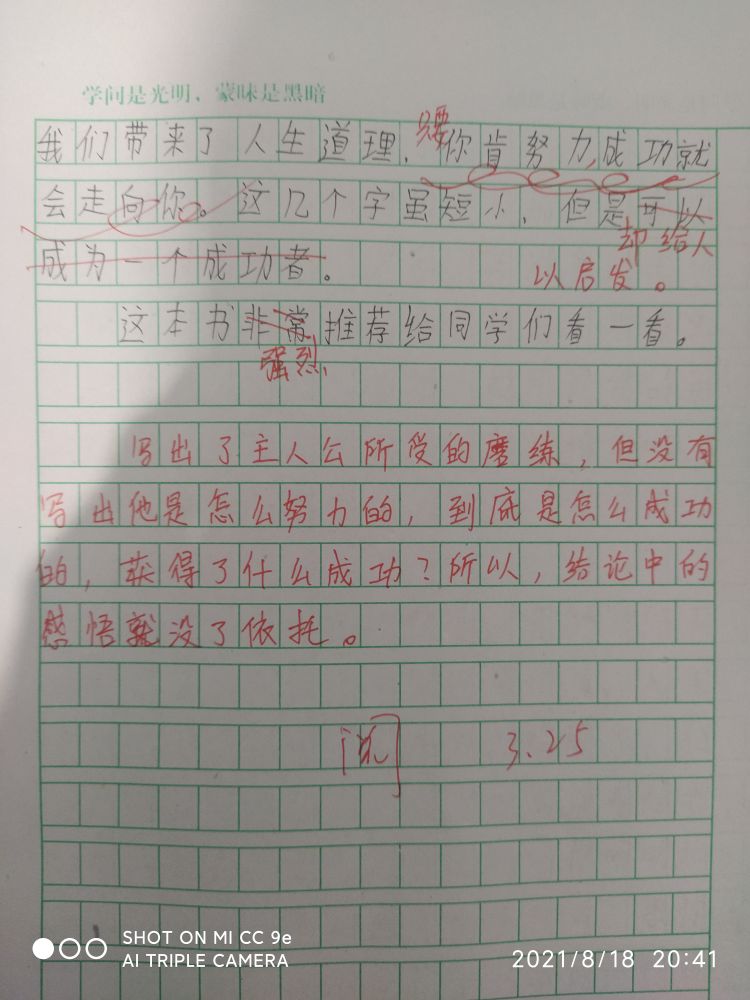 学问是光明，蒙昧是黑暗
我们带来了人生道理，只要你肯努力，成功就
会走向你。这几个字虽短小，但是可以
成为一个成功者。却给人
以启发。
这本书非常推荐给同学们看一看。
强烈
写出了主人公所受的磨练，但没有
写出他是怎么努力的，到底是怎么成功
的，获得了什么成功？所以，结论中的
感悟就没了依托。
阅 3.25
SHOT ON MI CC 9e
AI TRIPLE CAMERA
2021/8/18 20:41